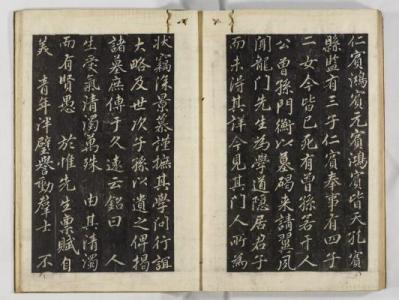 仁賓鴻賓元賓鴻賓皆夭孔賓
縣監有三子仁賓奉事有四子
二女今皆已死有曾孫若干人
公曾孫門衡以墓碣来請翼夙
聞龍門先生為學道隱居君子
而未得其詳今見其門人所為
狀竊深景慕謹摭其學問行誼
大略及世次子孫以遺之俾揭
諸墓庶傳于久遠云銘曰 人
生受氣清濁萬殊 由其清濁
而有賢愚 於惟先生禀賦自
美 青年泮璧譽動羣士 不